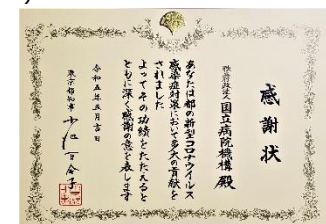 感謝状
独立行政法人国立病院機構 殿
あなたは都の新型コロナウイルス
感染症対策において多大の貢献を
されました
よってその功績をたたえると
ともに深く感謝の意を表します
令和五年五月吉日
東京都知事 小池百合子